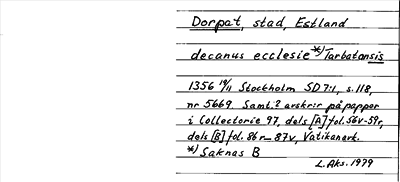 Dorpat, stad, Estland
decanus ecclesie *) Tarbatensis
1356 19/11 Stockholm SD 7:1, s. 118,
nr 5669. Samt.? avskr:r på papper
i Collectorie 97, dels [A] fol. 56v-59r,
dels [B] fol. 86r-87v, Vatikanark.
*) Saknas B
L. Aks. 1979